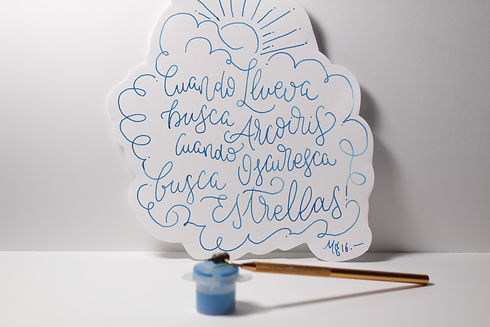 Cuando Llueva
busca Arcoiris
Cuando Oscuresca
busca
Estrellas!
Mg 16.-